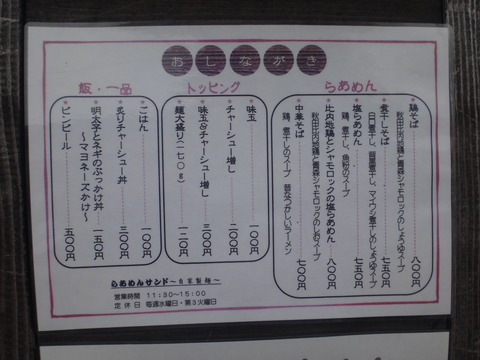 おしながき
らあめん
鶏そば 八〇〇円
秋田比内地鶏と青森シャモロックのしょうゆスープ
煮干しそば 七五〇円
塩らあめん 七五〇円
鶏、煮干し、魚粉のスープ
比内地鶏とシャモロックの塩らあめん 八〇〇円
秋田比内地鶏と青森シャモロックのしおスープ
中華そば 七〇〇円
鶏、煮干しのスープ 昔なつかしいラーメン
トッピング
味玉 一〇〇円
チャーシュー増し 二〇〇円
味玉&チャーシュー増し 三〇〇円
麺大盛り(一七〇g) 一二〇円
飯・一品
ごはん 一〇〇円
炙りチャーシュー丼 三〇〇円
明太子とネギのぶっかけ丼 一五〇円
～マヨネーズかけ～
ビンビール 五〇〇円
らあめんサンド～自家製麺～
営業時間 11:30～15:00
定休日 毎週水曜日・第3火曜日